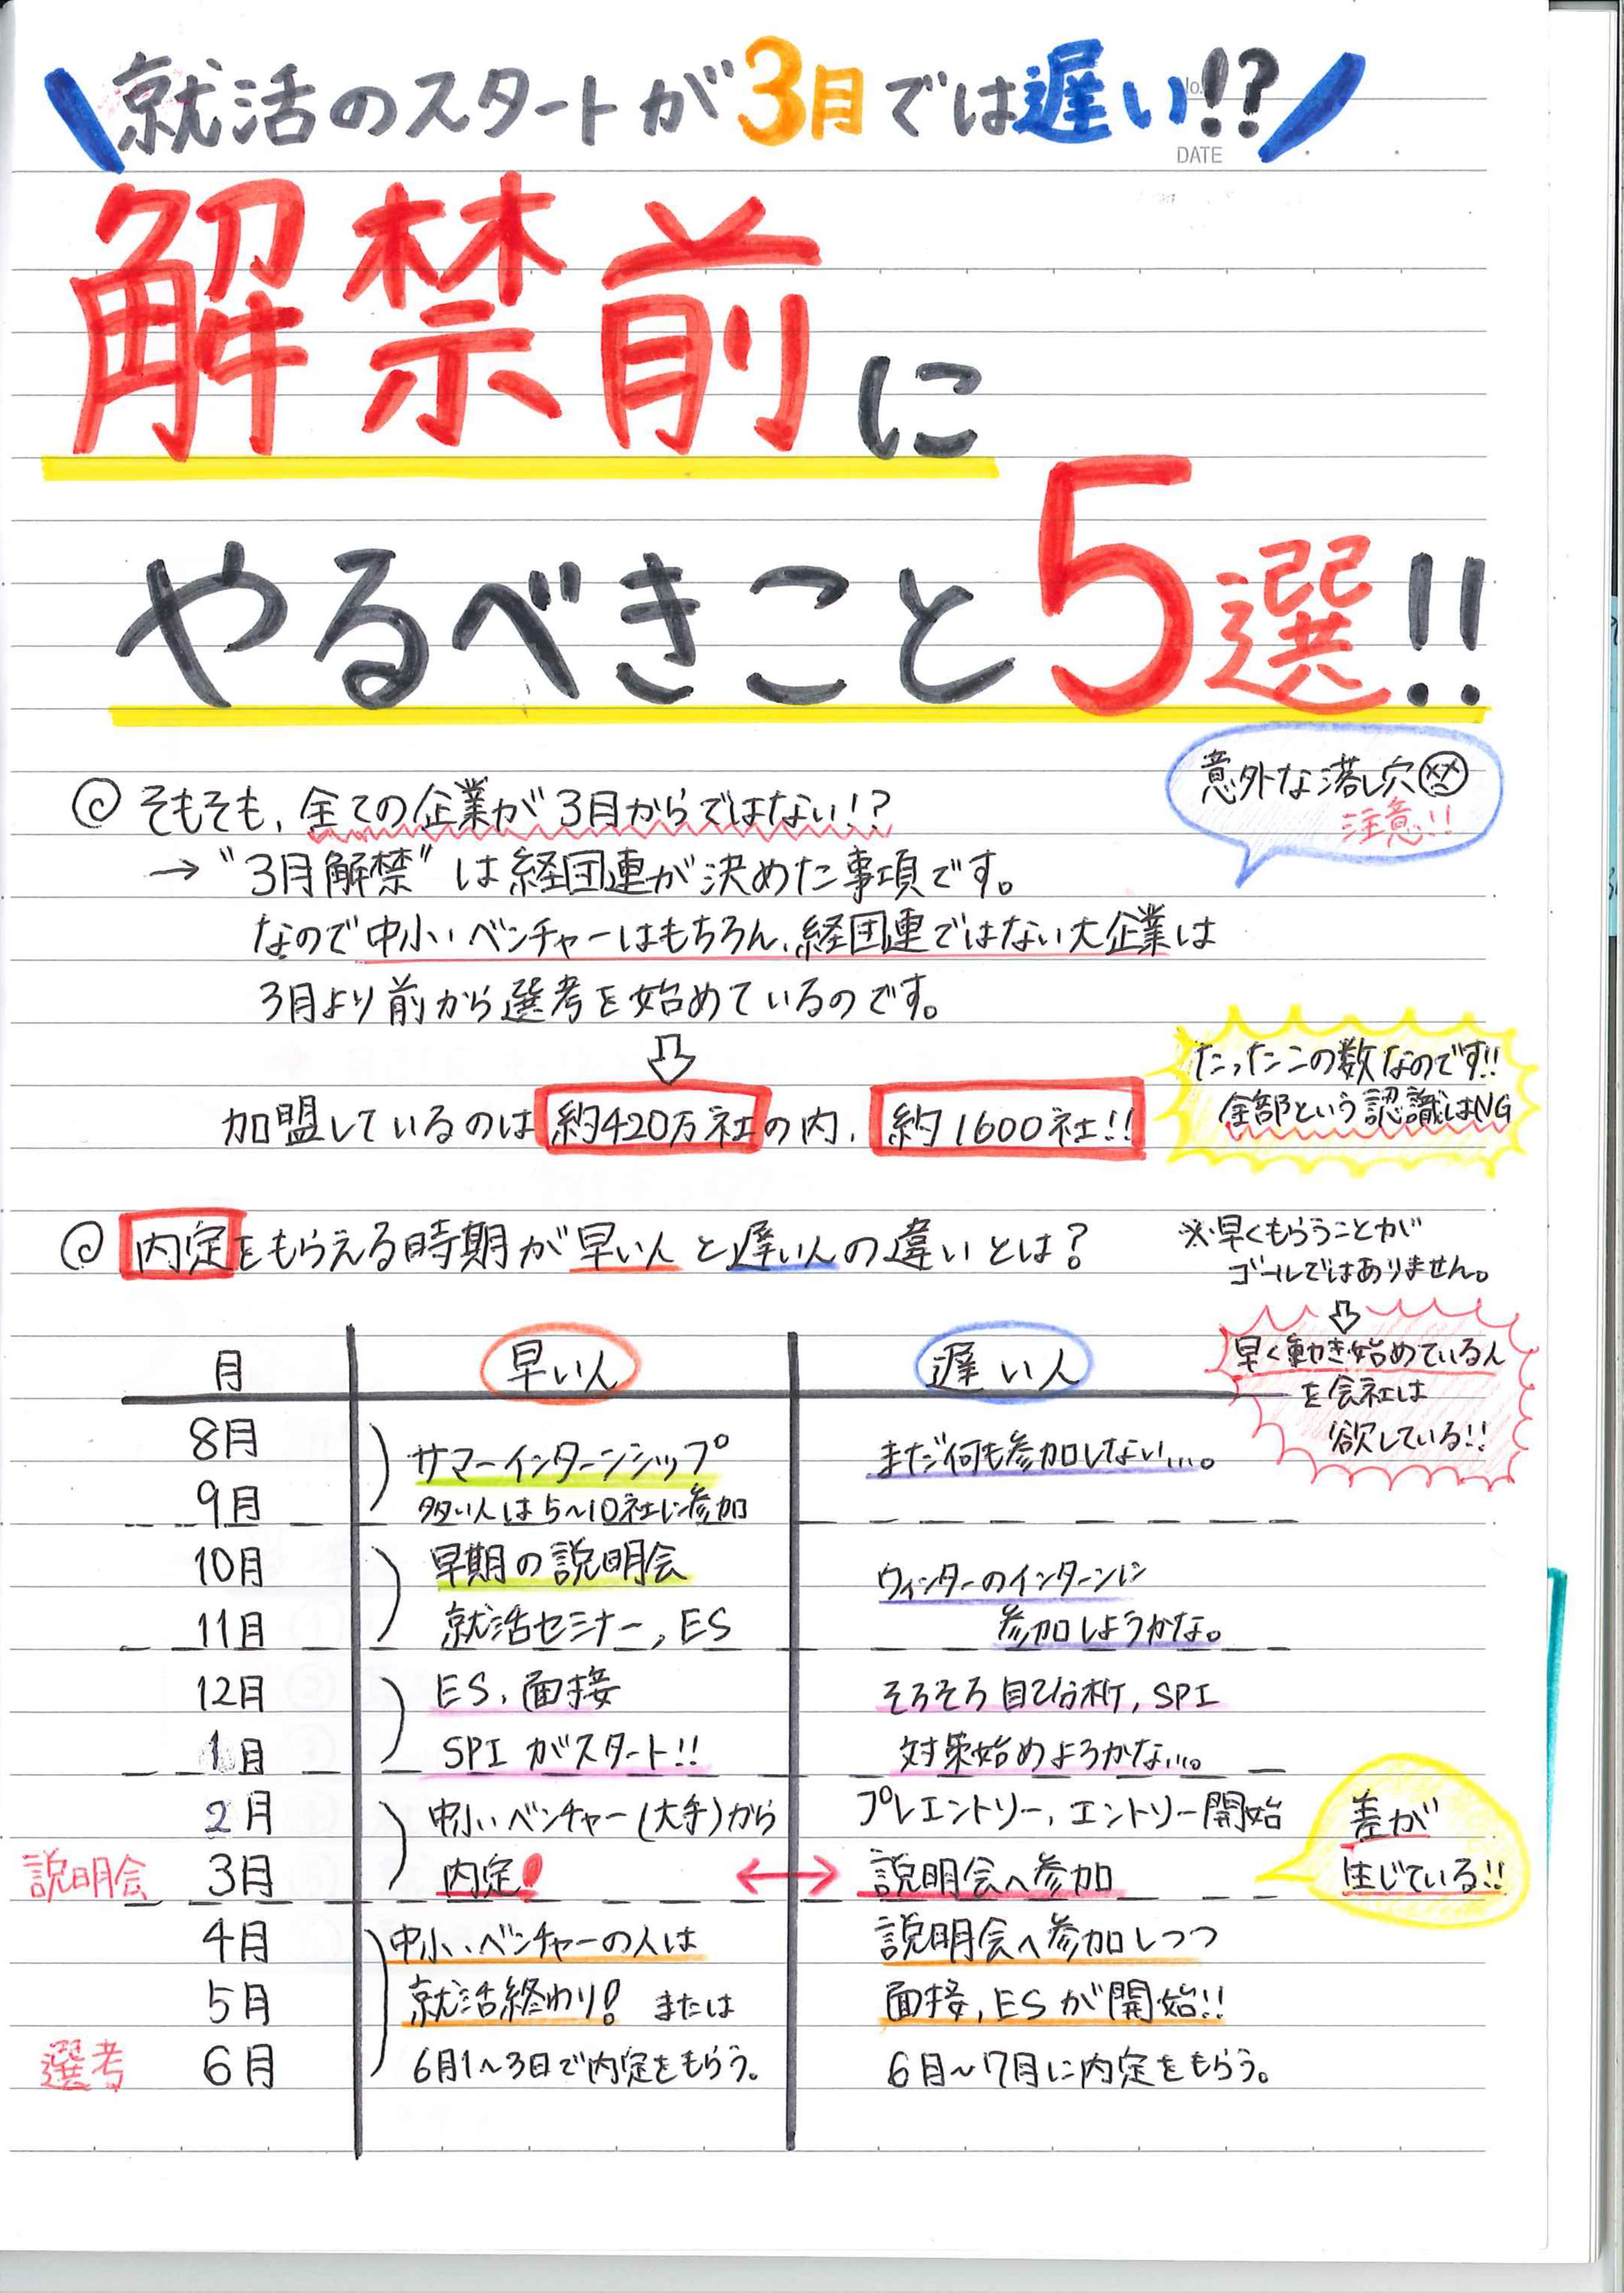 就活のスタートが3月では遅い!?
No.
DATE
解禁前に
やるべきこと5選!!
意外な落し穴
注意!!
◎そもそも、全ての企業が3月からではない!?
→"3月解禁"は経団連が決めた事項です。
なので中小・ベンチャーはもちろん、経団連ではない大企業は
3月より前から選考を始めているのです。
⇩
加盟しているのは約420万社の内、約1600社!!
たったこの数なのです!!
全部という認識はNG
◎内定をもらえる時期が早い人と遅い人の違いとは?
※早くもらうことが
ゴールではありません。
⇩
早く動き始めている人
を会社は
欲している!!
月 早い人 遅い人
8月 サマーインターンシップ まだ何も参加しない…。
9月 多い人は5〜10社に参加
10月 早期の説明会 ウィンターのインターンに
11月 就活セミナー, ES 参加しようかな。
12月 ES、面接 そろそろ自己分析, SPI
1月 SPIがスタート!! 対策始めようかな…。
2月 中小・ベンチャー(大手)から プレエントリー, エントリー開始
説明会 3月 内定! ↔ 説明会へ参加
差が
生じている!!
4月 中小・ベンチャーの人は 説明会へ参加しつつ
5月 就活終わり! または 面接, ESが開始!!
選考 6月 6月1〜3日で内定をもらう。 6月〜7月に内定をもらう。